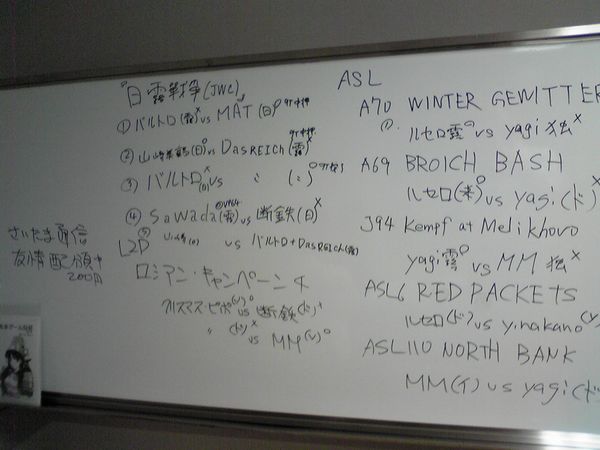 『日露戦争(JWC)』
①バルトロ(露)× vs MAT(日)○
②山崎 (日)○ vs DasREICH(露)×
③バルトロ vs 〃
④Sawada(露) vs 断鉄(日)×
L2P vs バルトロ+DasREICH(露)
ロシアン・キャンペーン4
クリスマス・ピポ(ソ)○ vs 断鉄(ド)
〃 (ド)× vs MM(ソ)○
さいたま通信
友情配頒中
200円
ASL
A70 WINTER GEWITTER
ルセロ露○ vs yagi独×
A69 BROICH BASH
ルセロ(米)○ vs yagi(ド)×
J94 Kempf at Melikhovo
yagi露○ vs MM独×
ASL6 RED PACKETS
ルセロ(ド)? vs yinakano(ソ
ASL110 NORTH BANK
MM(イ) vs yagi(ド